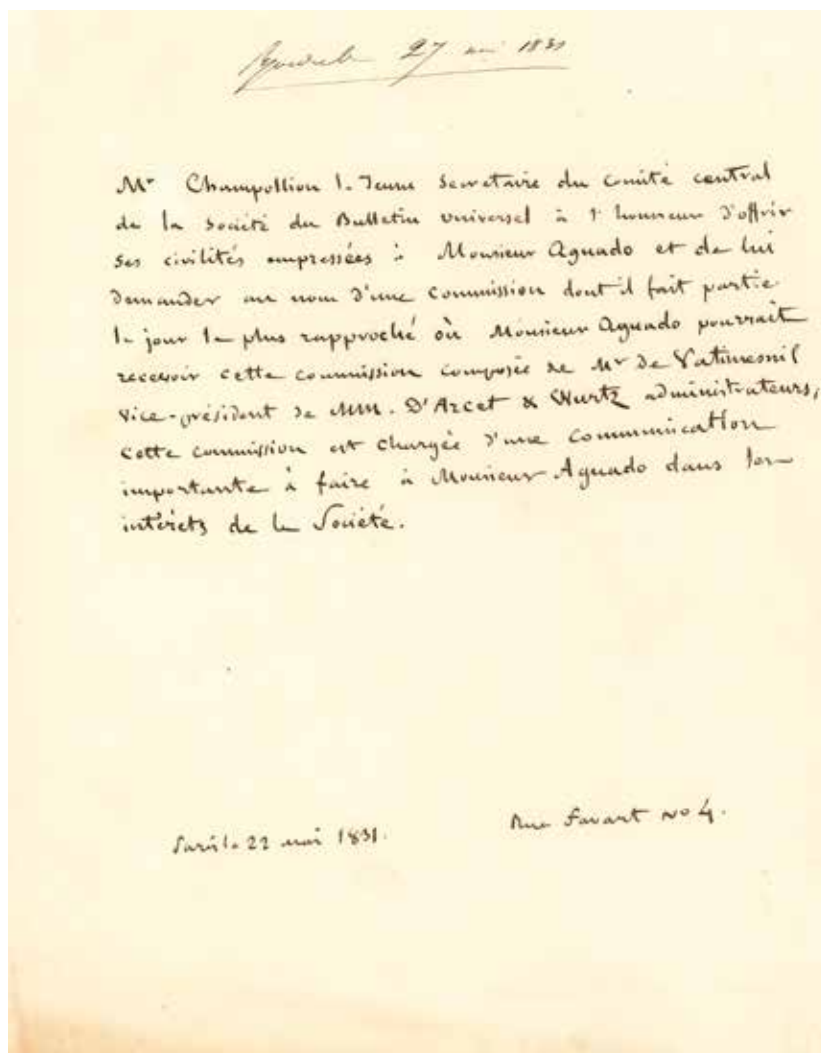 27 mai 1831
Mr Champollion le Jeune Secretaire du comité central
de la Société du Bulletin universel à l'honneur d'offrir
ses civilités empressées à Monsieur Aguado et de lui
demander au nom d'une commission dont il fait partie
le jour le plus rapproché où Monsieur Aguado pourrait
recevoir cette commission composée de Mr de Vatimesnil
vice-président de MM. D'Arcet & Wurtz administrateurs,
cette commission est chargée d'une communication
importante à faire à Monsieur Aguado dans les
intérêts de la Société.
Paris le 22 mai 1831.
Rue Favart no 4.